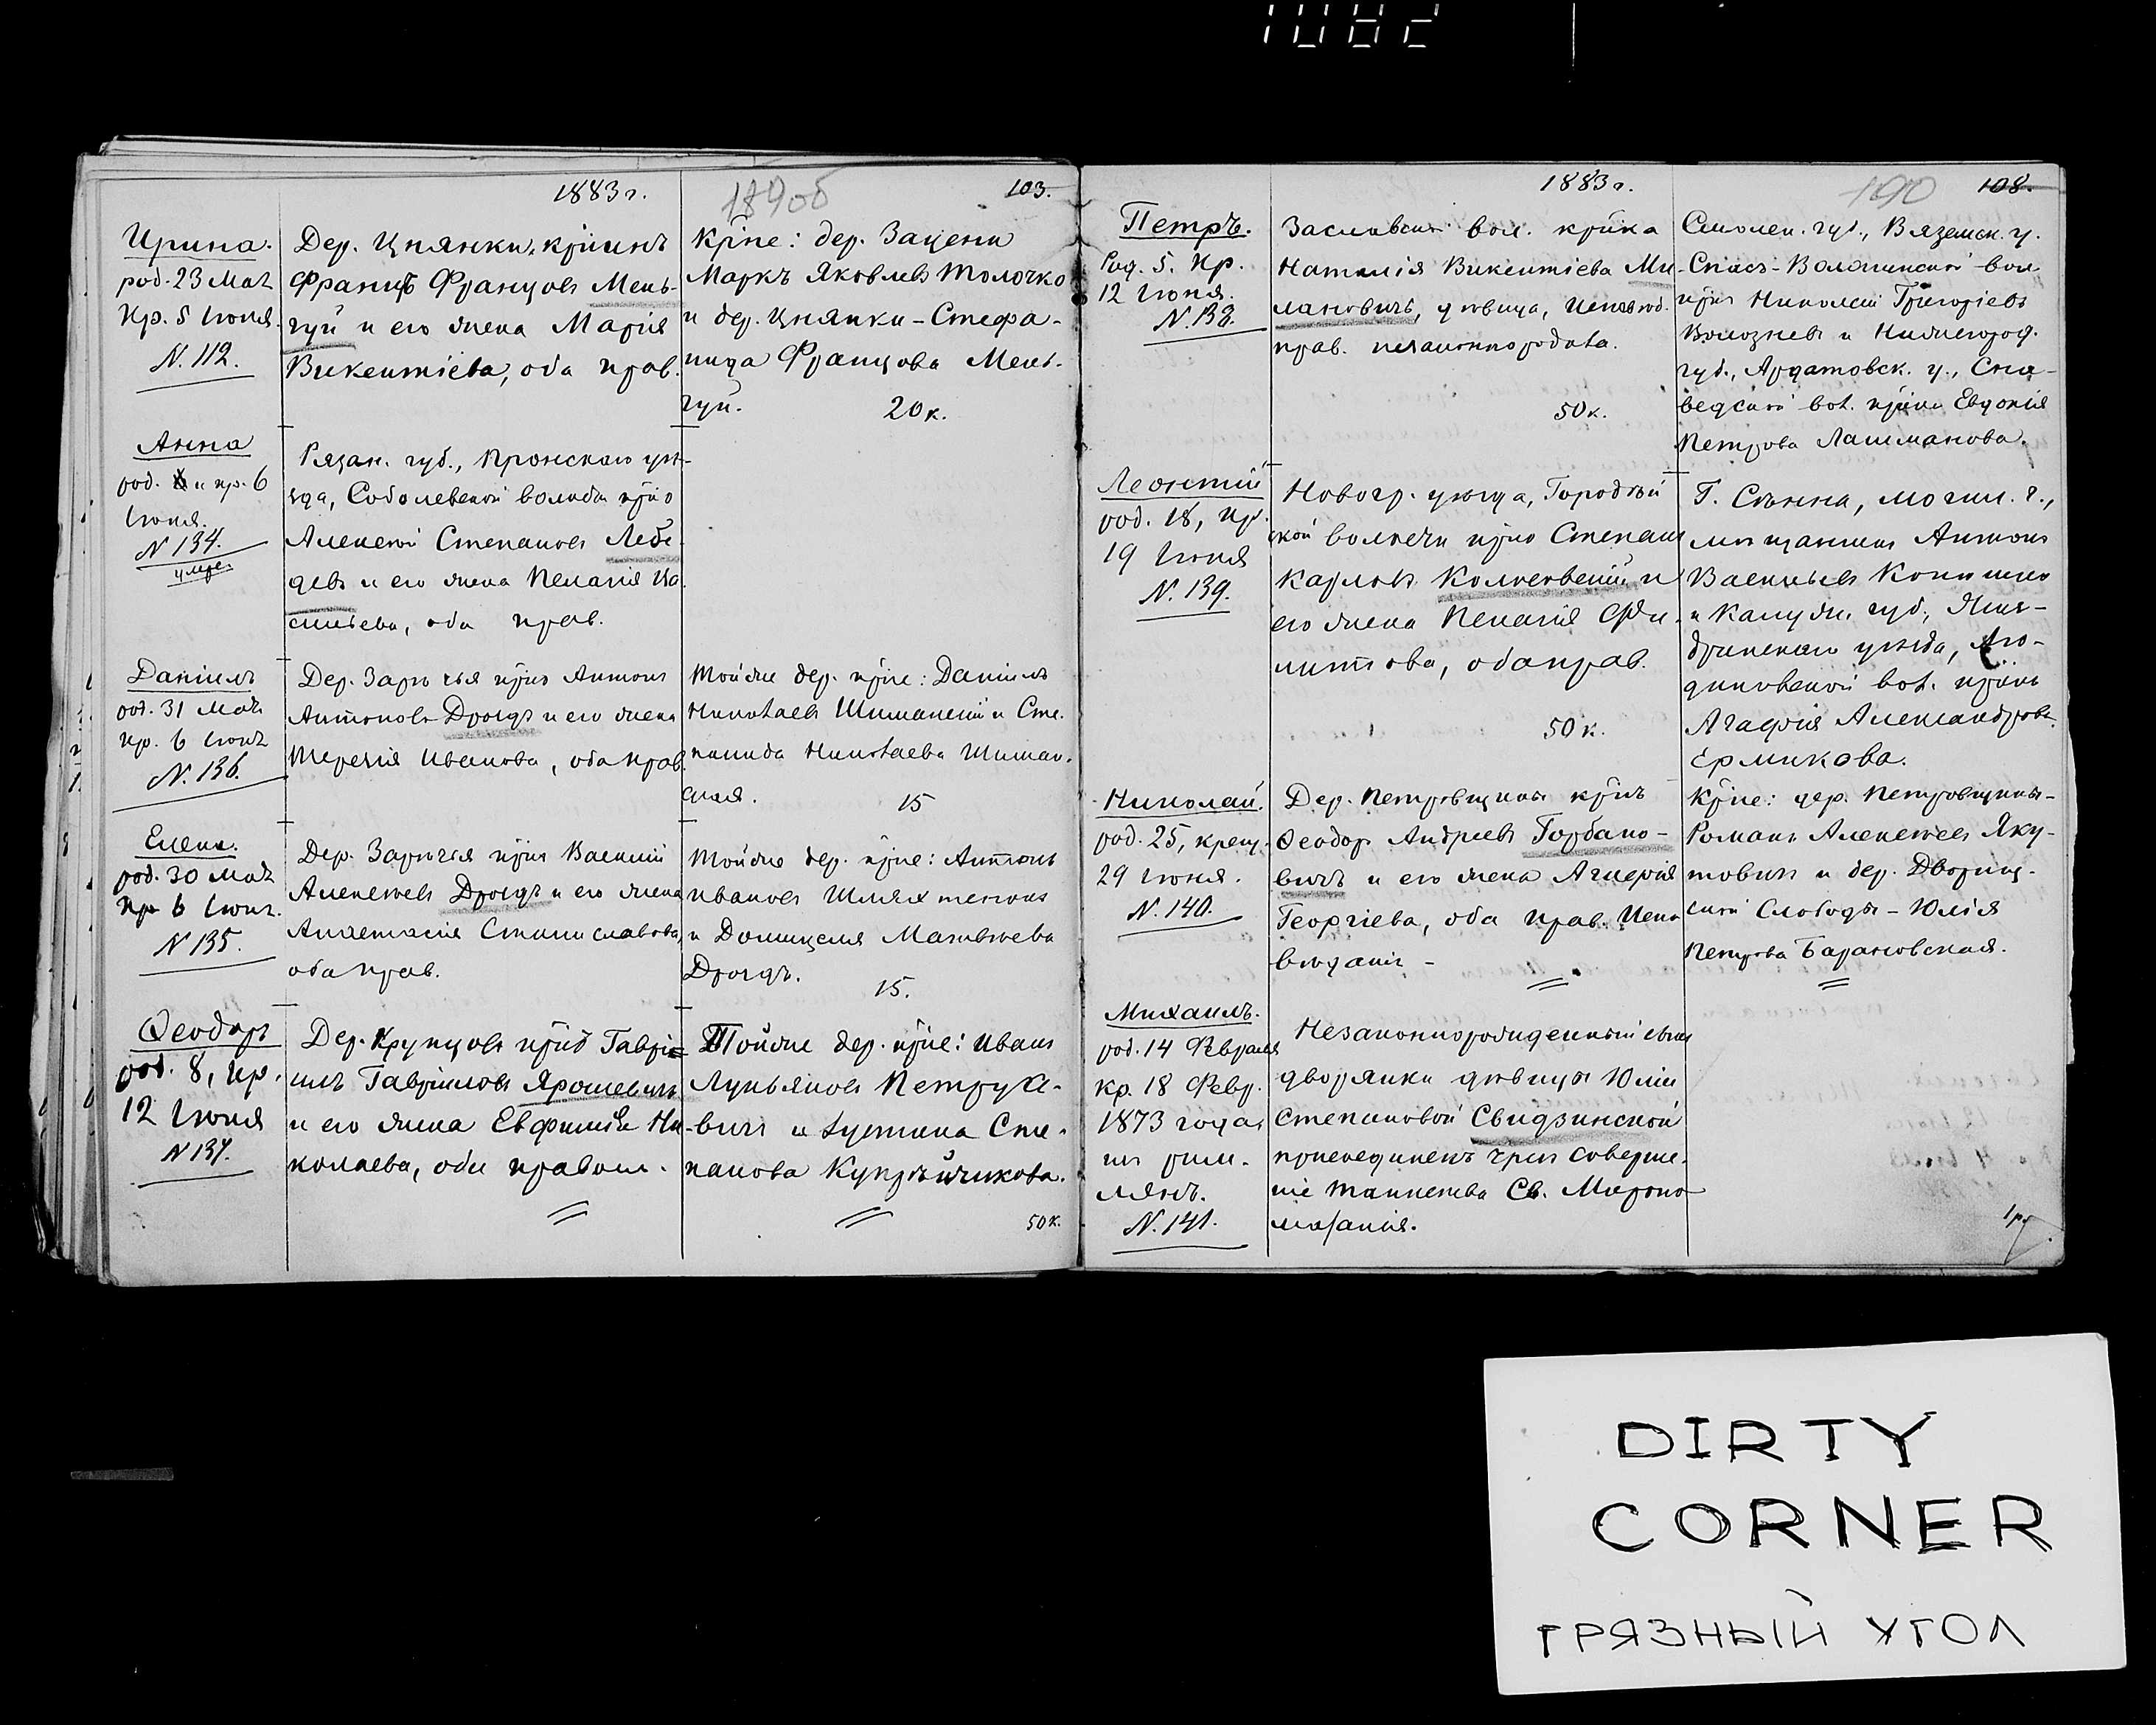 1082
1883 г.
189об
103.
Ирина.
род. 23 Мая
Кр. 5 Июня.
N. 112.
Дер. Цнянки, кр̃инъ
Францъ Францовъ Мень-
гуй и его жена Марія
Викентіева, оба прав.
Кр̃не: дер. Зацени
Маркъ Яковлевъ Толочко
и дер. Цнянки - Стефа-
нида Францова Мень-
гуй. 20 к.
Анна
род. и кр. 6
Июня.
N 134.
умре.
Рязан. губ., Пронскаго уѣ-
зда, Соболевской волости кр̃но
Алексѣй Степановъ Лебе-
девъ и его жена Пелагія Ва-
сильева, оба прав.
Даніилъ
род. 31 Мая
кр. 6 Июня
N. 136.
Дер. Зарѣчья кр̃нъ Антонъ
Антоновъ Дроздъ и его жена
Терезія Иванова, оба прав.
Тойже дер. кр̃не: Даніилъ
Николаевъ Шиманскій и Сте-
панида Николаева Шиман-
ская. 15
Елена.
род. 30 Мая
кр. 6 Июня.
N 135.
Дер. Зарѣчья кр̃нъ Василій
Алексѣевъ Дроздъ и его жена
Анастасія Станиславова,
оба прав.
Тойже дер. кр̃не: Антонъ
Ивановъ
и Домицеля Матвѣева
Дроздъ. 15.
Ѳеодоръ
род. 8, кр.
12 Июня
N 137.
Дер. Крупцовъ кр̃нъ Гаврі=
илъ Гавріиловъ Ярошевичъ
и его жена Евфимія Ни-
колаева, оба правосл.
Тойже дер. кр̃не: Иванъ
Лукьяновъ Петруке-
вичъ и Іустина Сте-
панова Купрѣйчикова.
50 к.
1883 г.
190
108.
Петръ.
Род. 5. Кр.
12 Июня.
N. 138.
Заславской вол. кр̃нка
Наталія Викентіева Ми-
лановичъ, дѣвица, Исповѣд.
прав. незаконнородна.
50 к.
Смолен. губ., Вяземск. у.
Спасъ-Волжинской вол.
кр̃нъ Николай Григоріевъ
и Нижегород.
губ., Ардатовск. у.,
ведской вол. кр̃нка Евдокія
Петрова Лашманова.
Леонтій
род. 18, кр.
19 Июня
N. 139.
Новогр. уѣзда, Городей
ской волости кр̃нъ Степанъ
Карловъ и
его жена Пелагія Фи-
липпова, оба прав.
50 к.
Г. Сѣнна, Могил. г.,
мѣщанинъ Антонъ
Васильевъ
и Калужс. губ., Жиз-
дринскаго уѣзда, Лю-
диновской вол. кр̃нка
Агафія Александрова
Ермикова.
Николай.
род. 25, крещ.
29 Июня.
N. 140.
Дер. Петровщины кр̃нъ
Ѳеодоръ Андреевъ Горбано-
вичъ и его жена Агафія
Георгіева, оба прав. Испо
вѣданія -
Кр̃не: дер. Петровщины -
Романъ Алексѣевъ Яку-
товичъ и дер. Дворищ-
ской Слободы - Юлія
Петрова Барановская.
Михаилъ.
род. 14 Февраля
кр. 18 Февр.
1873 года,
изъ рим-
лянъ.
N. 141.
Незаконнорожденный сынъ
дворянки дѣвицы Юліи
Степановой Свидзинской
присоединенъ чрезъ соверше-
ніе таинства Св. Мѵропо
мазанія.
1 р.
DIRTY
CORNER
ГРЯЗНЫЙ УГОЛ